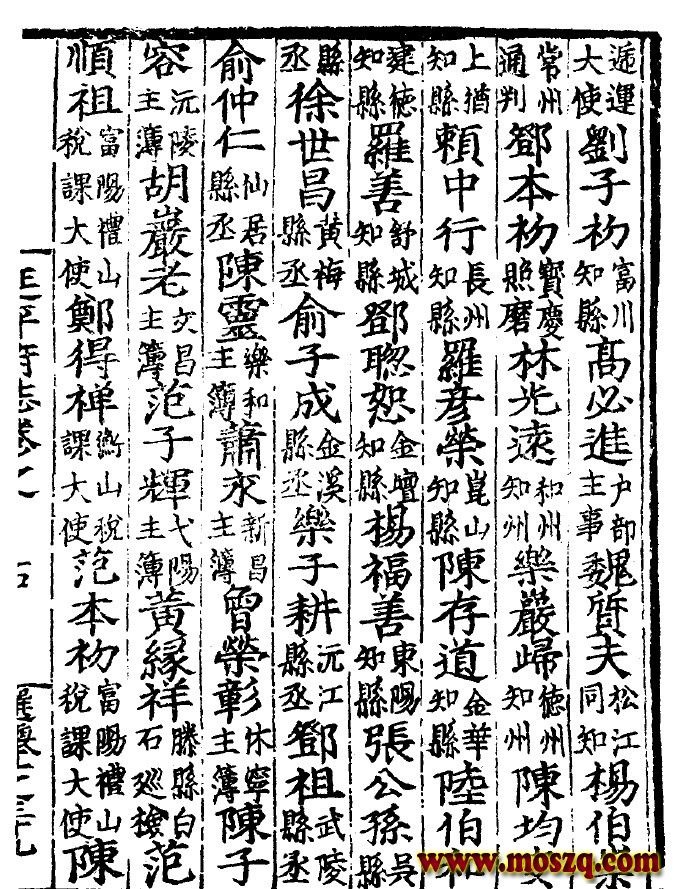 遞運大使劉子初富川知縣高必進戶部主事魏質夫松江同知楊伯
常州通判鄧本初寶慶照磨林光遠和州知州樂嚴歸德州知州陳均
上猶知縣賴中行長州知縣羅彥榮崑山知縣陳存道金華知縣陸伯
建德知縣羅善舒城知縣鄧聦恕金壇知縣楊福善東陽知縣張公孫吳縣
縣丞徐世昌黃梅縣丞俞子成金溪縣丞樂子耕沅江縣丞鄧祖武陵縣丞
俞仲仁仙居縣丞陳靈樂和主簿蕭永新昌主簿曾榮彰休寧主簿陳子
容沅陵主簿胡巖老文昌主簿范子輝弋陽主簿黃緣祥滕縣白石廵檢范
順祖富陽禮山稅課大使鄭得禅衡山稅課大使范本初富陽禮山稅課大使陳
府志卷
www.moszq.com